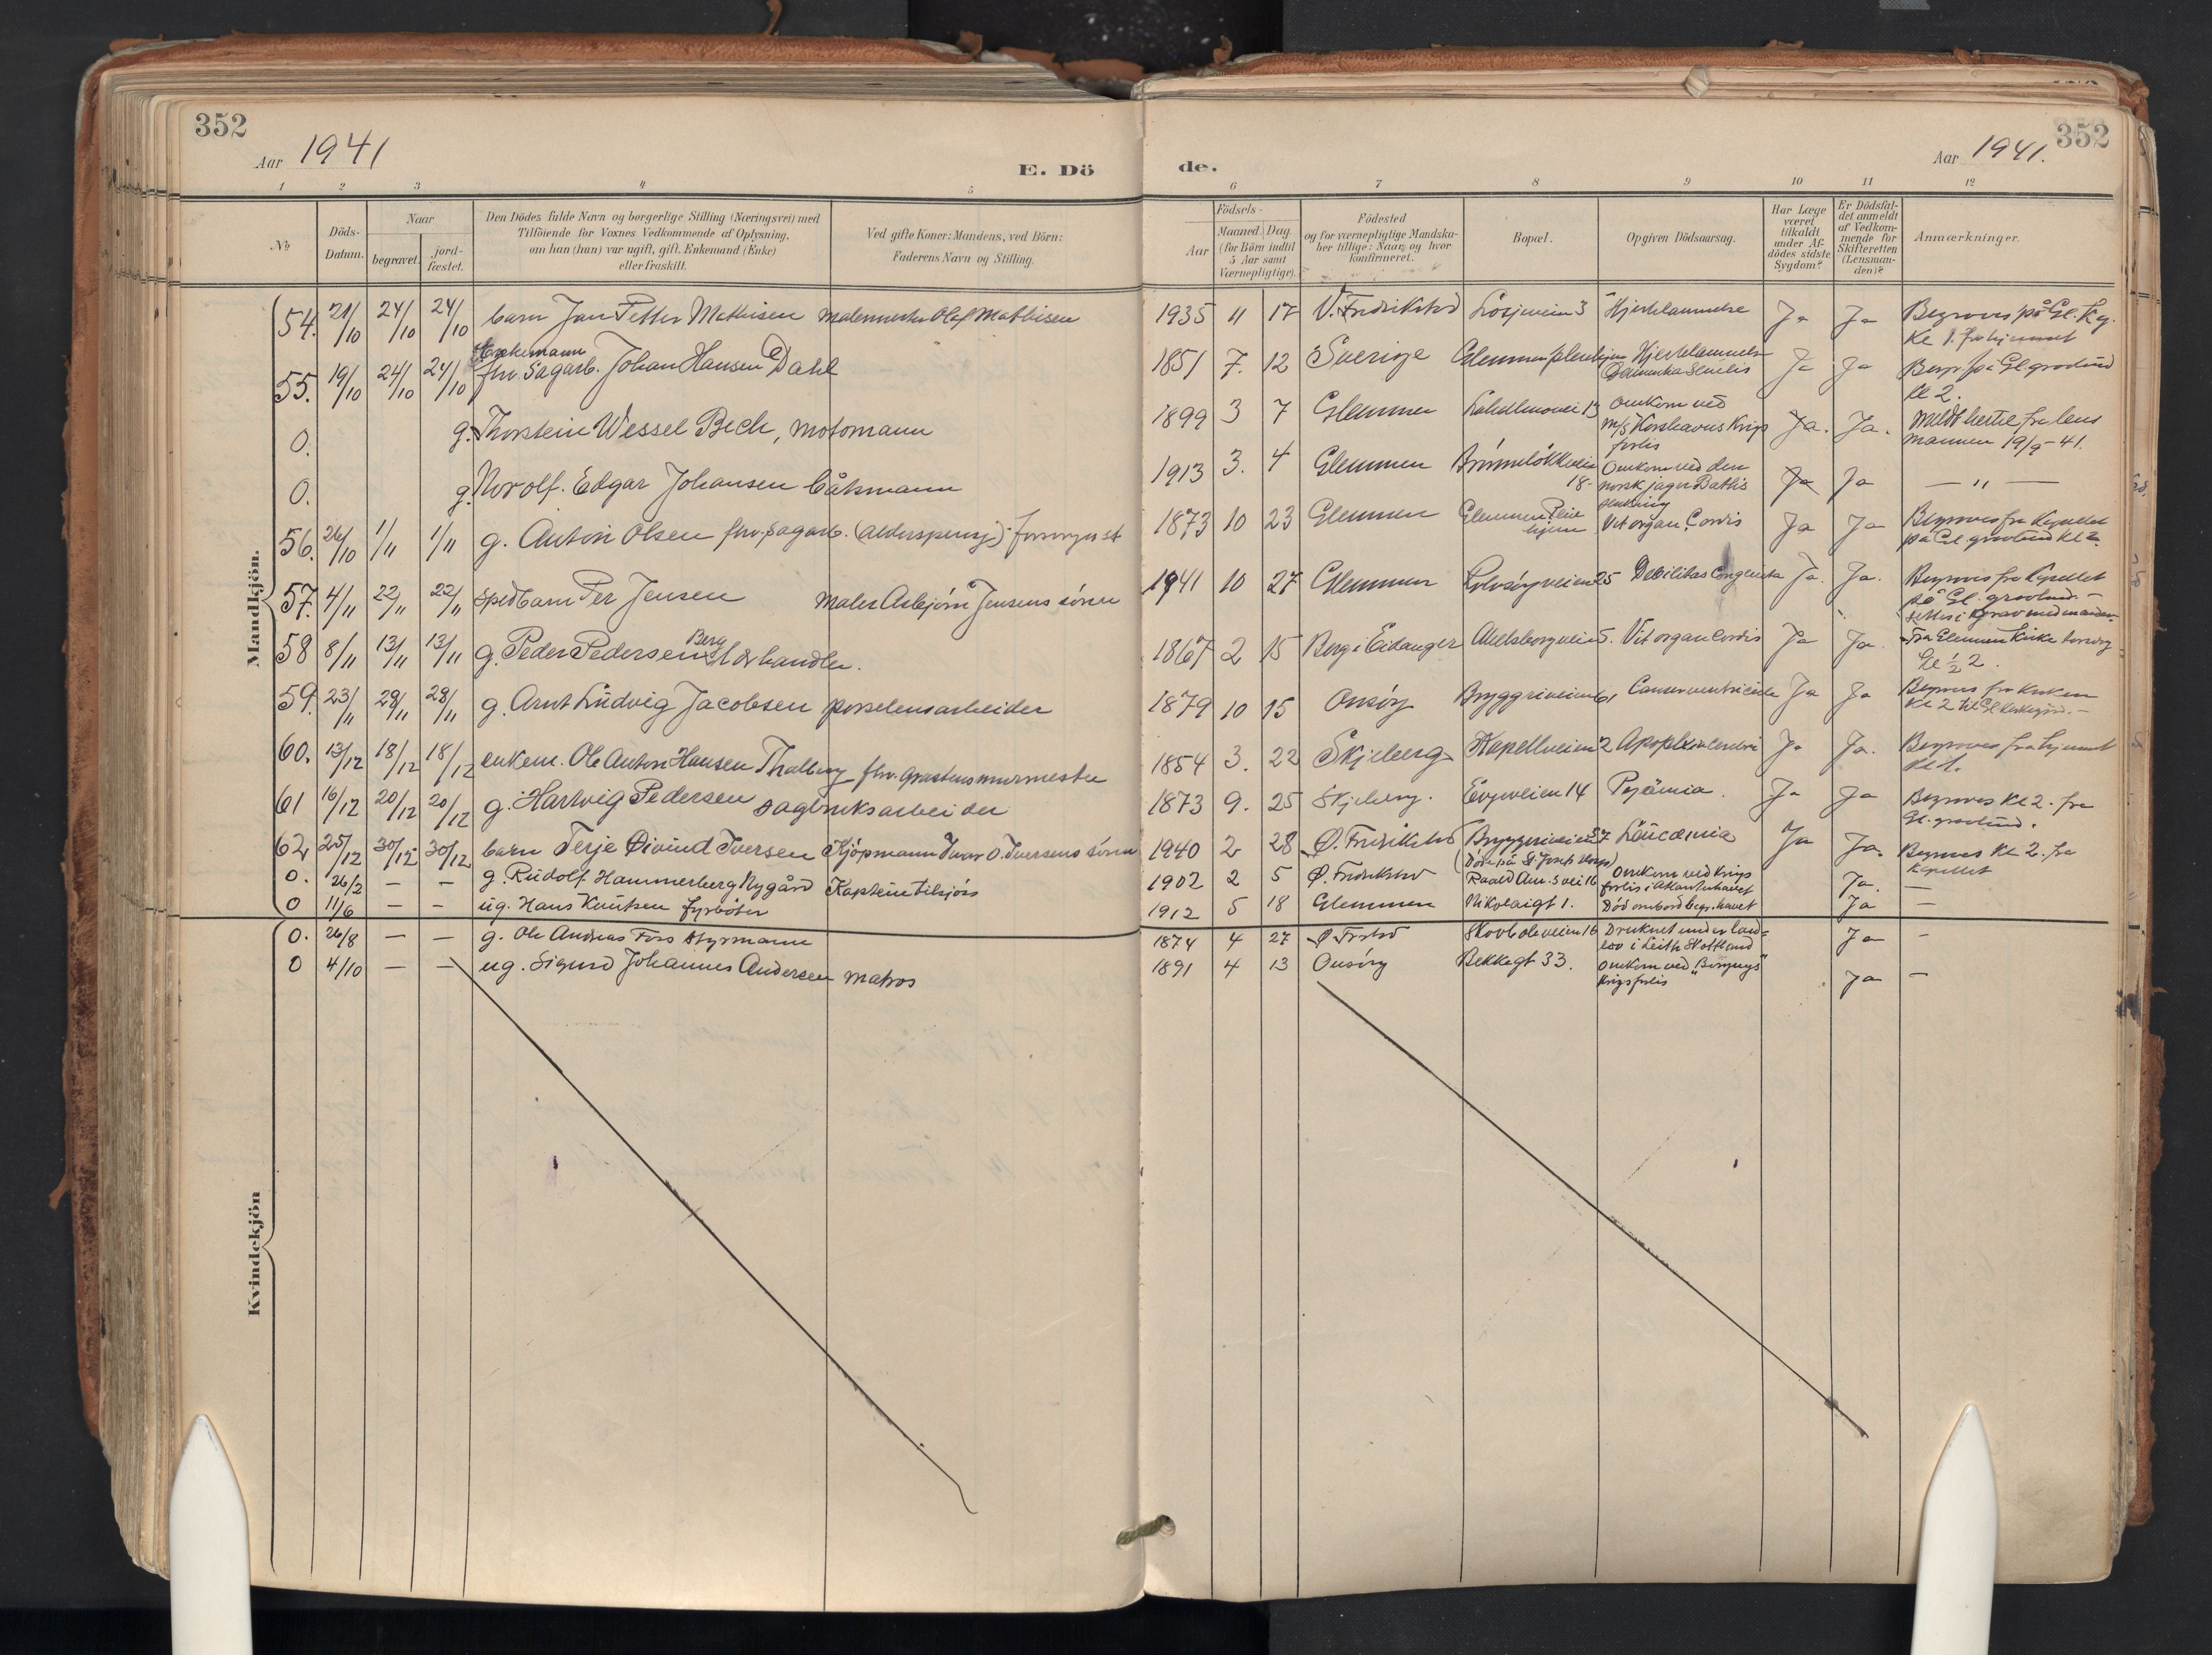 352
Aar 1941
E. Dö
1 2 3 4 5
№
Döds-
Datum.
Naar
begravet.
jord-
fæstet.
Den Dödes fulde Navn og borgerlige Stilling (Næringsvei) med
Tilföiende for Voxnes Vedkommende af Oplysning,
om han (hun) var ugift, gift, Enkemand (Enke)
eller fraskilt.
Ved gifte Koner: Mandens, ved Börn:
Faderens Navn og Stilling.
Mandkjön.
54. 21/10 24/10 24/10 barn Jan Petter Mathisen malermester Olaf Mathisen
Enkemann
55. 19/10 24/10 24/10 fhv. Sagarb. Johan Hansen Dahl
0. g. Thorstein Wessel Bech, motomann
0. g. Norolf Edgar Johansen båtsmann
56. 26/10 1/11 1/11 g. Anton Olsen fhv. sagarb. (alderspensj.)
57. 4/11 22/11 22/11 spedbarn Per Jensen maler Asbjørn Jensens sönn
Berg
58 8/11 13/11 13/11 g. Peder Pedersen handler.
59. 23/11 29/11 29/11 g. Arnt Ludvig Jacobsen porselensarbeider
60. 13/12 18/12 18/12 enkem. Ole Anton Hansen Thalberg fhv. gråstensmurmester
61 16/12 20/12 20/12 g. Hartvig Pedersen sagbruksarbeider
62, 25/12 30/12 30/12 barn Terje Øivind Iversen Kjöpmann Ivar O. Iversens sönn
0. 26/2 — — g. Rudolf Hammerberg Nygård Kaptein tilsjös
0 11/6 — — ug. Hans Knutsen fyrböter
0. 26/8 — — g. Ole Andreas Fors styrmann
0 4/10 — — ug. Sigurd Johannes Andersen matros
Kvindekjön
352
Aar 1941.
de.
6 7 8 9 10 11 12
Födsels-
Aar
Maaned. Dag.
(for Börn indtil
5 Aar samt
Værnepligtige).
Födested
og for værnepligtige Mandska-
ber tillige: Naar og hvor
konfirmeret.
Bopæl.
Opgiven Dödsaarsag.
Har Læge
været
tilkaldt
under Af-
dödes sidste
Sygdom?
Er Dödsfal-
det anmeldt
af Vedkom-
mende for
Skifteretten
(Lensman-
den)?
Anmærkninger.
1935 11 17 V. Fredrikstad Losjeveien 3 Hjertelammelse Ja Ja Begraves på Gl. Kg.
Kl 1. fra hjemmet
1851 7. 12 Sverige Glemmen pleiehjem Hjertelammelse Ja Ja Begr. på Gl. gravlund
Dementia Senilis
kl 2.
1899 3 7 Glemmen 13 Omkom ved Ja. Ja. Meldt hertil fra lens
m/s krigs
forlis
mannen 19/9-41.
1913 3. 4 Glemmen 18 Omkom ved den Ja Ja — " —
norsk jager Baths
senkning
1873 10 23 Glemmen Glemmen Pleie
hjem Vit organ. Cordis Ja Ja Begraves fra Kapellet
på Gl. gravlund kl 2.
1941 10 27 Glemmen Rolvsöyveien 25 Debilitas Congenita Ja. Ja. Begraves fra Kapellet
på Gl. gravlund. —
settes i grav med
1867 2 15 Berg i Eidanger Akelsborgveien 5. Vit organ Cordis Ja Ja. Fra Glemmen Kirke torsdag
kl 1/2 2.
1879 10 15 Onsöy Bryggeriveien 61 Cancer ventriculi Ja Ja Begraves fra Kirken
Kl 2 til Gl. kirkegård. —
1854 3. 22 Skjeberg Kapellveien 2 Apoplexia cerebri Ja Ja. Begraves fra hjemmet
kl 1.
1873 9. 25 Skjeberg. Evjeveien 14 Pyämia. Ja Ja Begraves kl 2. fra
Gl. gravlund.
1940 2 28 Ø. Fredrikstad Bryggeriveien 57 Leucæmia Ja Ja. Begraves Kl 2. fra
(Döde på St. Josephs Hosp.)
Kapellet
1902 2 5 Ø. Fredrikstad Raald Am. s vei 16 Omkom ved krigs
forlis i Atlanterhavet Ja. —
1912 5 18 Glemmen Nikolaigt 1. Död ombord begr. havet Ja —
1874 4 27 Ø. Frstad 16 Druknet under land-
lov i Leith Skottland Ja —
1891 4 13 Onsöy Bekkegt 33. Omkom ved "Borgnys"
Krigsforlis Ja —